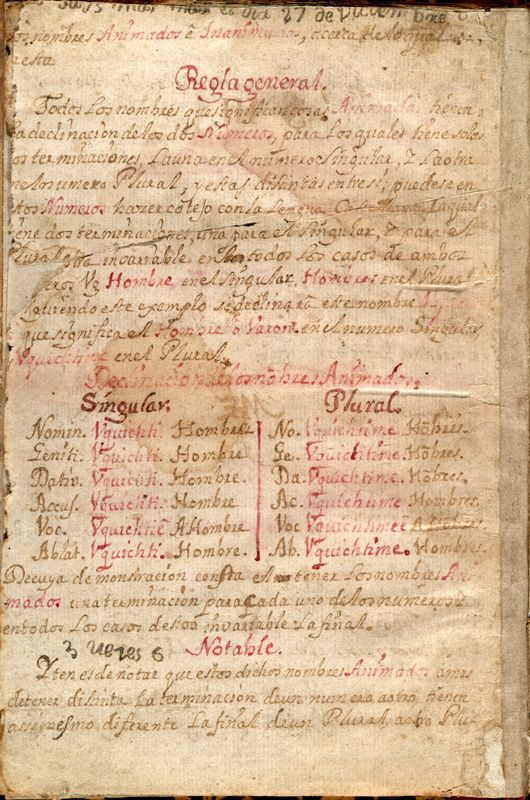 mar el dia 27 de Diciembre
los nombres Animados è Inanimados, acerca de lo qual
resta
Regla general.
Todos los nombres que significan cosas Animada, tienen
la declinacion de los dos Numeros, para los quales tiene solos
os terminaciones, La una en el numero Singular, Y La otra
en el numero Plural, y estas distintas entre sí; puedese en
stos Numeros hazer cotejo con la Lengua Laqual
tiene dos terminaciones, una para el singular, Y para el
Plural otra invariable en todos los casos de ambos
eros Vg Hombre en el Singular, Hombres en el Plural
iguiendo este exemplo se declinarà este nombre
que significa el Hombre ò Varon. en el numero Singular
Vquichtime en el Plural.
Declinacion de los nõbres Animados.
Singular. Plural.
Nomin. Vquichti. Hombre No. Vquichtime. Hõbres.
Geniti. Vquichti. Hombre Ge. Vquichtime. Hõbres.
Dativ. Vquichti. Hombre. Da. Vquichtime. Hõbres.
Accus. Vquichti. Hombre Ac. Vquichtime. Hombres.
Voc. Vquichtiè A Hombre Voc Vquichtimeè A
Ablat. Vquichti. Hombre. Ab. Vquichtime. Hombres.
De cuya demonstracion consta el tener Los nombres Ani
mados una terminacion para cada uno de los numeros Y
en todos Los casos de estos invariable La final.
3 vezes 6
Notable.
Yten es de notar que estos dichos nombres Animados amas
de tener distinta La terminacion de un numero a otro tienen
assimesmo diferente La final de un Plural, a otro Plu-